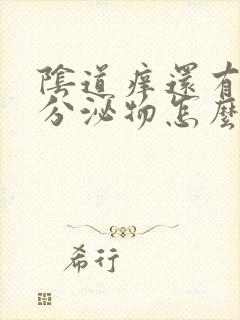 陰道痒還有
分泌物怎麼
希行